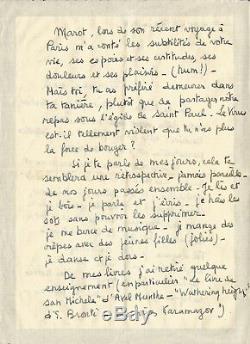 Marot, lors de son récent voyage à
Paris m'a conté les subtilités de votre
vie, ses espoirs et ses certitudes, ses
douleurs et ses plaisirs - (hum!) -
Mais toi, tu as préféré demeurer dans
ta tanière, plutôt que de partager notre
repas sous l'égide de Saint Paul. Le
est-il tellement virulent que tu n'as plus
la force de bouger?
Si je te parle de mes jours, cela te
semblera une rétrospective, jamais pareille
de nos jours passés ensemble. Je lis et
je bois - je parle et j'écris - je hais les
sots sans pouvoir les supprimer -
je me berce de musique - je mange des
crêpes avec des jeunes filles (jolies) -
je danse et je dors -
De mes livres j'ai retiré quelque
enseignement (en particulier "Le livre de
san Michele" d'Axel Munthe - "Wuthering heights"
d'E. Brontë Karamazov)